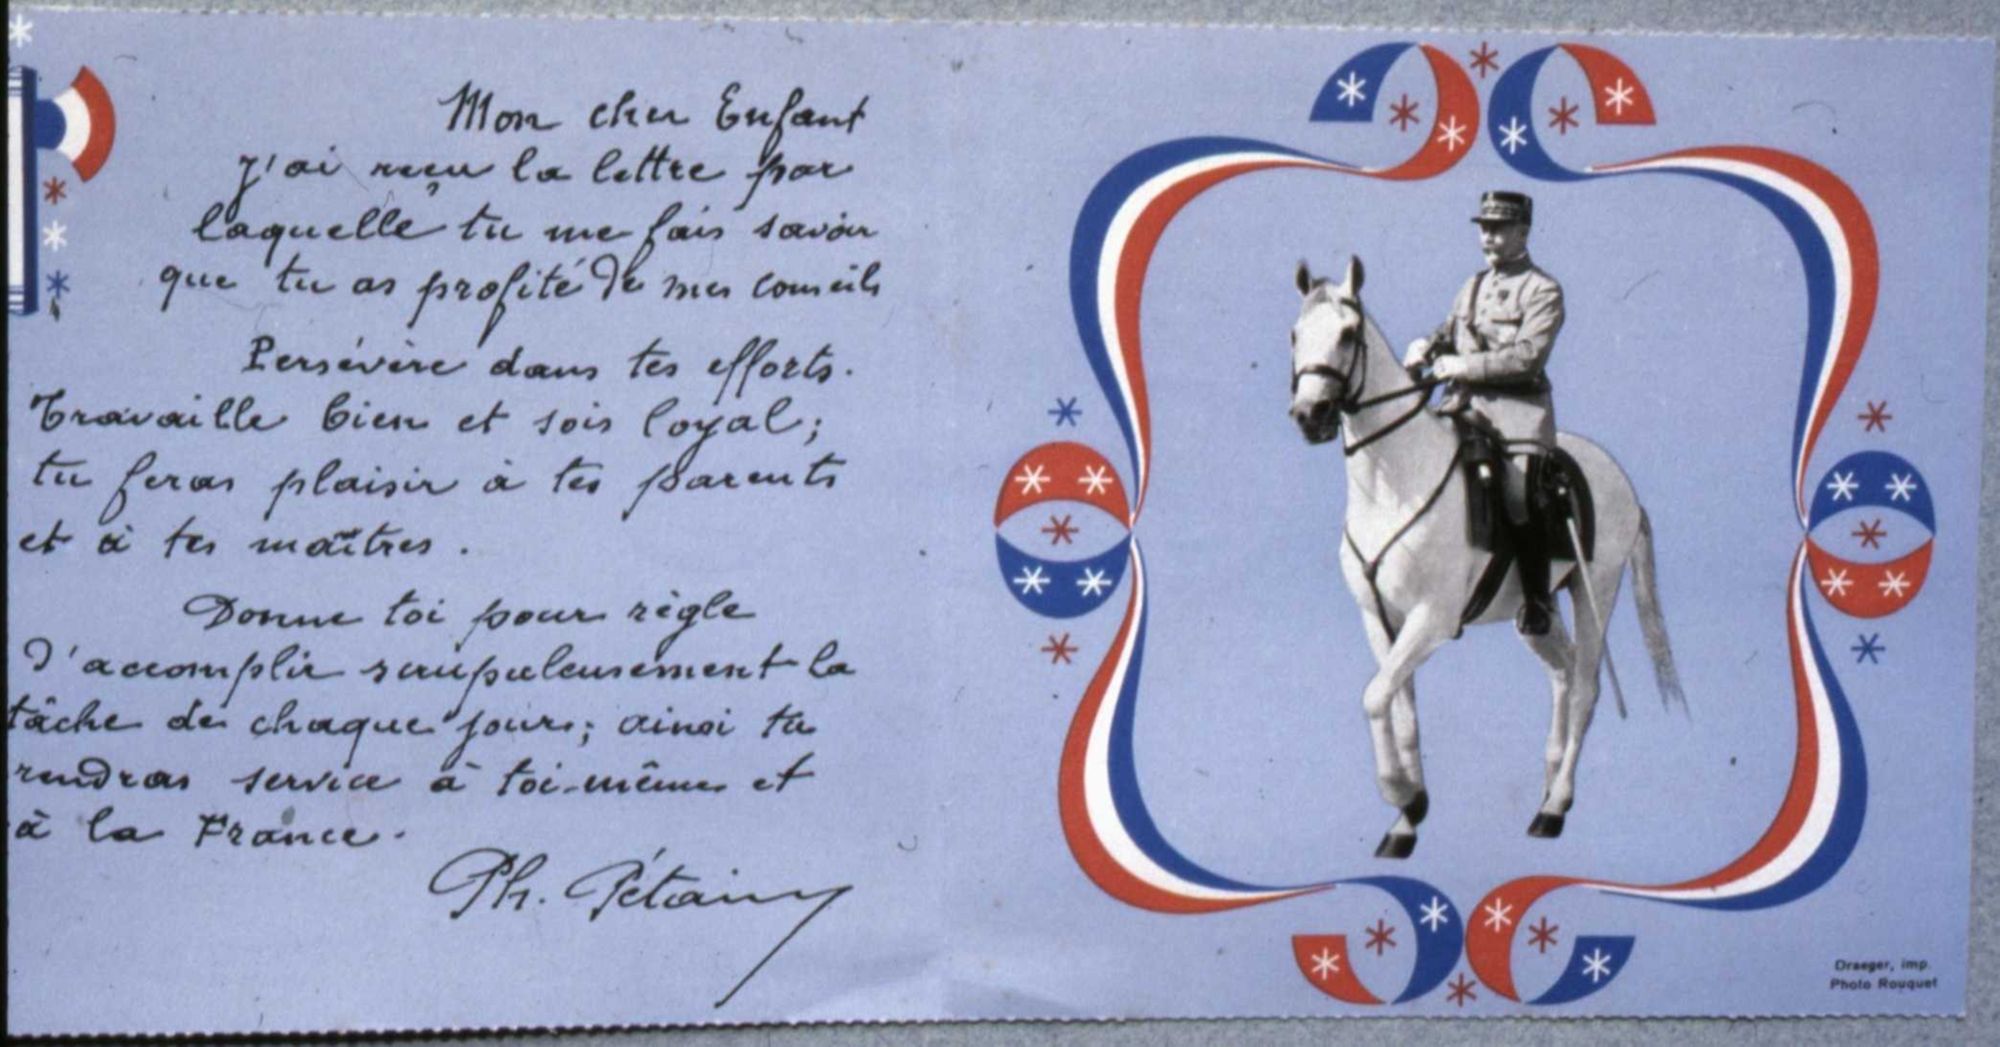 Mon cher Enfant
j'ai reçu la lettre par
laquelle tu me fais savoir
que tu as profité de mes conseils
Persévère dans tes efforts.
Travaille bien et sois loyal;
tu feras plaisir à tes parents
et à tes maîtres.
Donne toi pour règle
d'accomplir scrupuleusement la
tâche de chaque jour; ainsi tu
rendras service à toi-même et
à la France.
Ph. Pétain
Draeger, imp.
Photo Rouquet